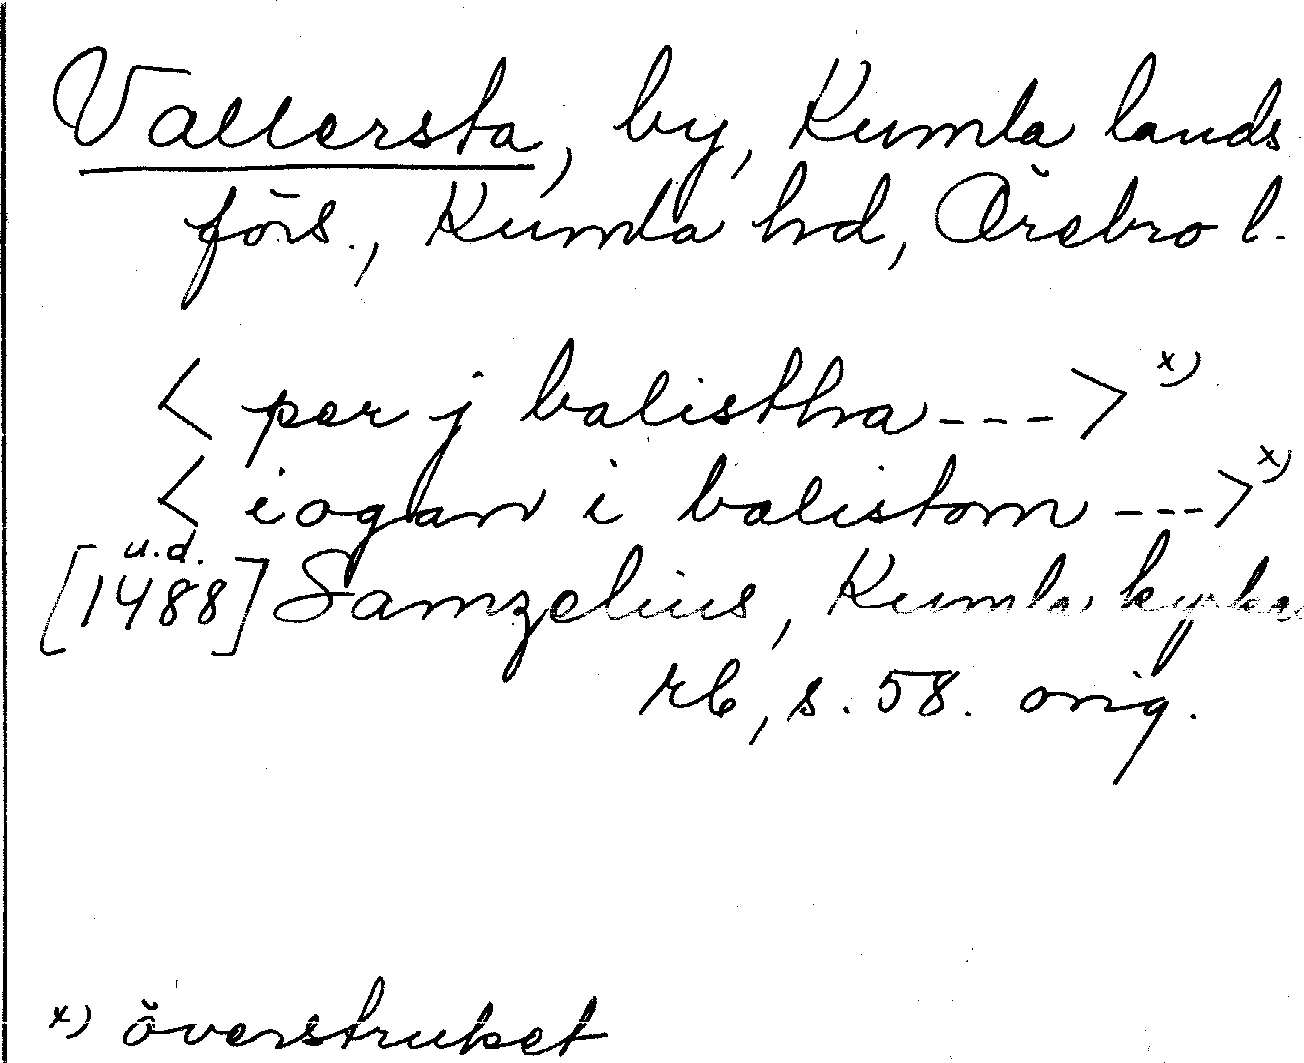 Vallersta, by, Kumla lands
förs., Kumla hd, Örebro l.
< per j balistha --- > x)
< iogan i balistom --- > x)
u.d.
[1488] Samzelius, Kumla kyrkas
rb, s. 58. orig.
x) överstruket